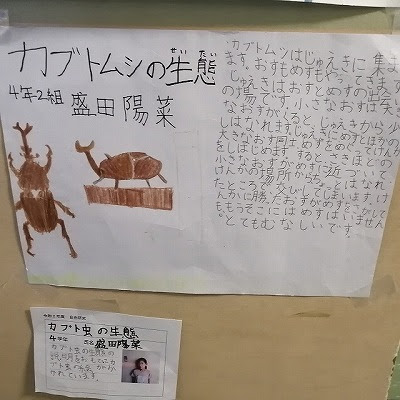 カブトムシの生態
せい たい
4年2組 盛田陽菜
カブトムシはじゅえきに集まり
ます。おすもめすもやってきます。
じゅえきはおすとめすの出会い
の場です。小さなおすは大き
なおすがくると、じゅえきから少
しはなれます。じゅえきに
大きなおす同士がめすを けんか
をしはじめます。すると、さきほどの
小さなおすがめすに近づいて
けんかの場所からちょっとはなれ
たところで交びしてしまいます。け
んかに勝ったおすがめすをさがして
ももうそこにはめすはいません。
とてもむなしいです。
カブト虫の生態
4学年 盛田陽菜
カブト虫の生態の
説明をもとにカ
ブト虫の
かれています。